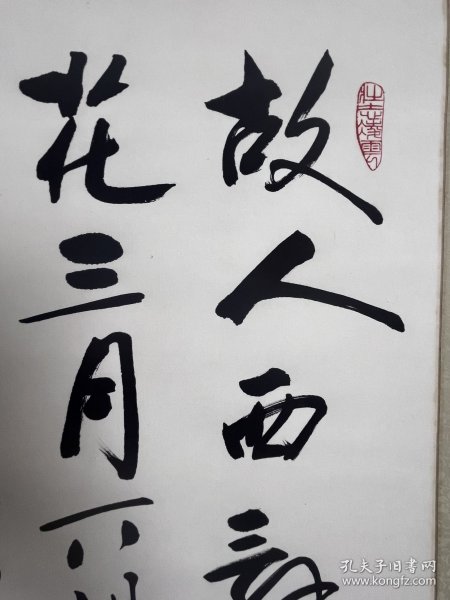 故人西辞
花三月下
壮志凌云
孔夫子旧书网
www.kongfz.com